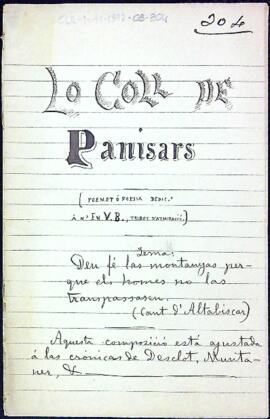 204
LO COLL DE
Panisars
(POEMET Ó POESIA DEDIC.ª
Á N' EN V. B., TRIBUT D'ADMIRACIÓ.)
Lema:
Deu fé las montanyas per-
que els homes no las
transpassasen.
(Cant d'Altabiscar)
Aquesta composició está ajustada
á las crónicas de Desclot, Munta-
ner, &